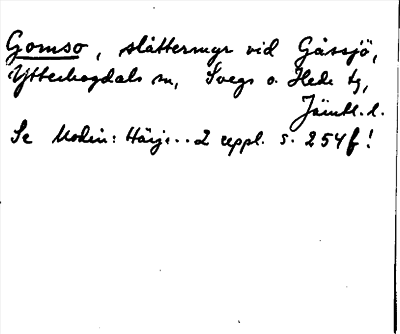 Gomso, slåttermyr vid Gåssjö,
Ytterhogdals sn, Svegs o. Hede tg,
Jämtl. l.
Se Modin: Härj... 2 uppl. s. 254f!